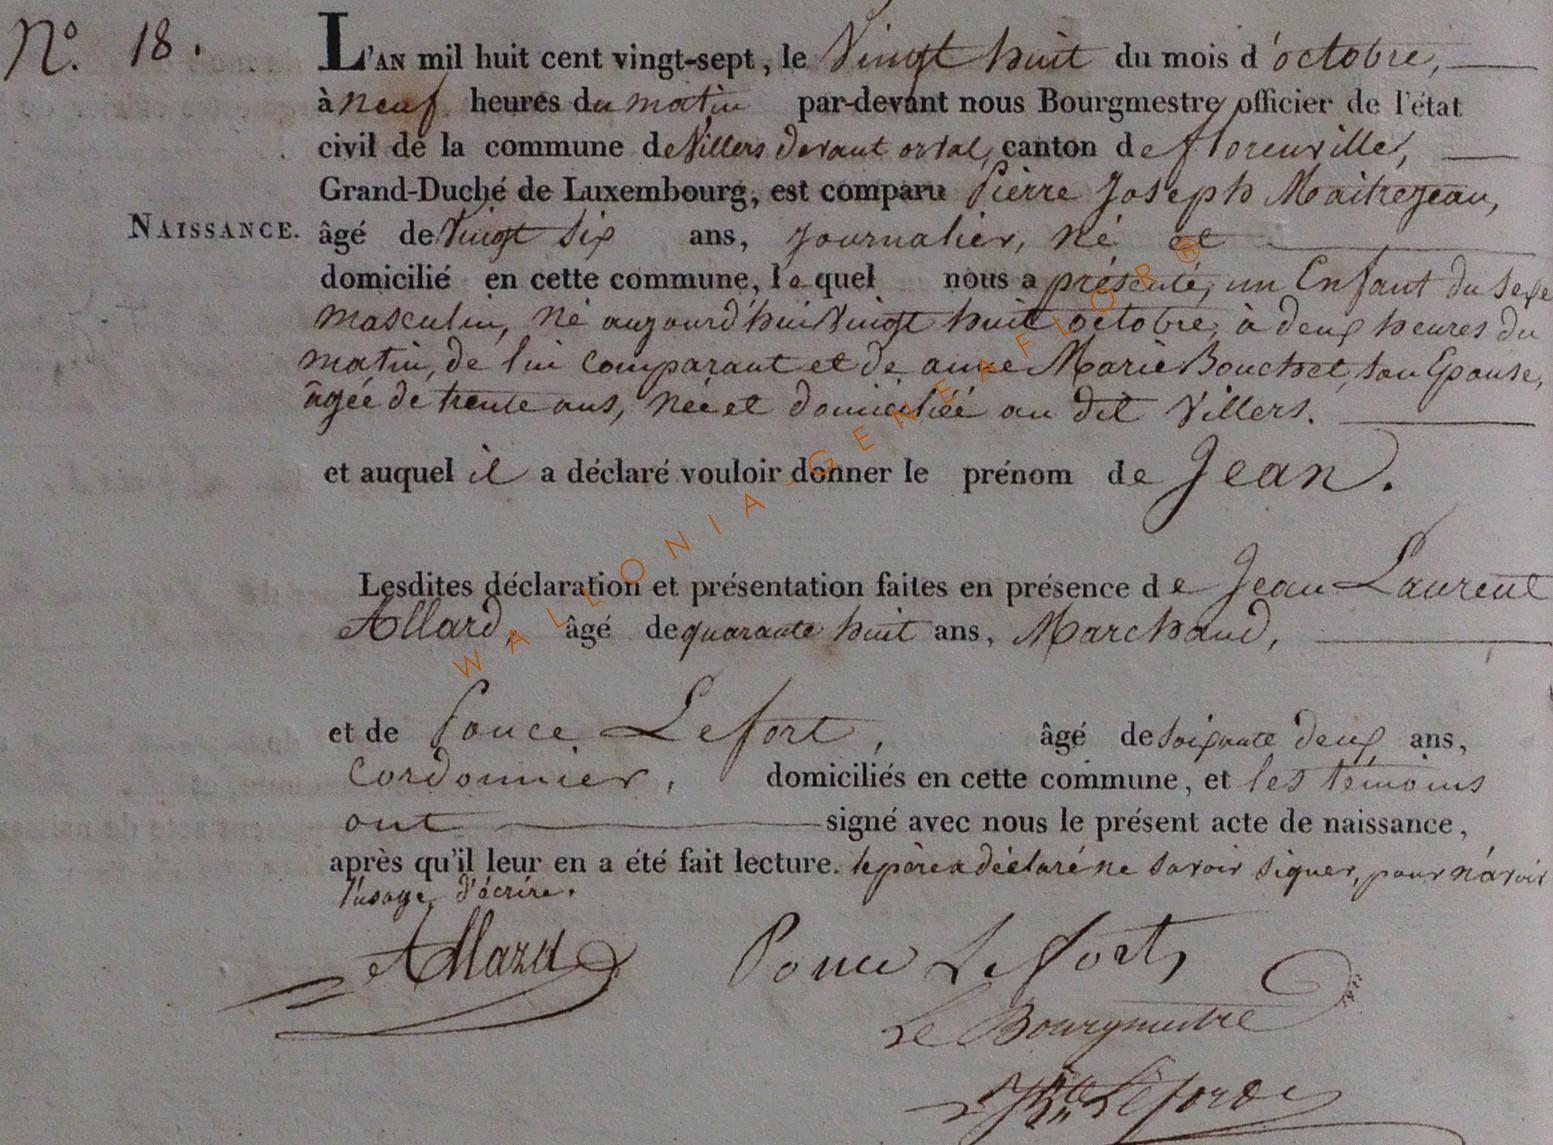 N.º 18.
L'AN mil huit cent vingt-sept, le Vingt huit du mois d'octobre,
à neuf heures du matin par-devant nous Bourgmestre, officier de l'état
civil de la commune de Villers devant orval, canton de florenville,
Grand-Duché de Luxembourg, est comparu Pierre Joseph Maitrejean,
NAISSANCE. âgé de Vingt Six ans, journalier, né et
domicilié en cette commune, lequel nous a présenté, un Enfant du sexe
masculin, né aujourd'hui Vingt huit octobre, à deux heures du
matin, de lui comparant et de anne Marie Bouchet, son Epouse,
âgée de trente ans, née et domiciliée au dit Villers.
et auquel il a déclaré vouloir donner le prénom de Jean.
Lesdites déclaration et présentation faites en présence de Jean Laurent
Allard, âgé de quarante huit ans, Marchand,
et de Ponce Lefort, âgé de soixante deux ans,
Cordonnier, domiciliés en cette commune, et les témoins
ont signé avec nous le présent acte de naissance,
après qu'il leur en a été fait lecture. le père a déclaré ne savoir signer, pour n'avoir
l'usage d'écrire.
Allard Ponce Lefort,
Le Bourgmestre
WALLONIA-GENEAFLOR®